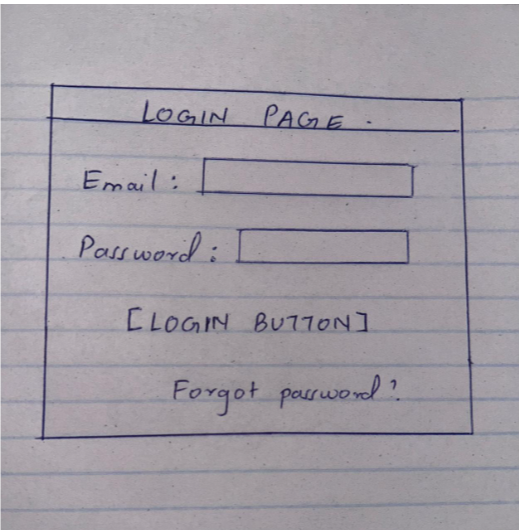 LOGIN PAGE.
Email:
Password:
[LOGIN BUTTON]
Forgot password?